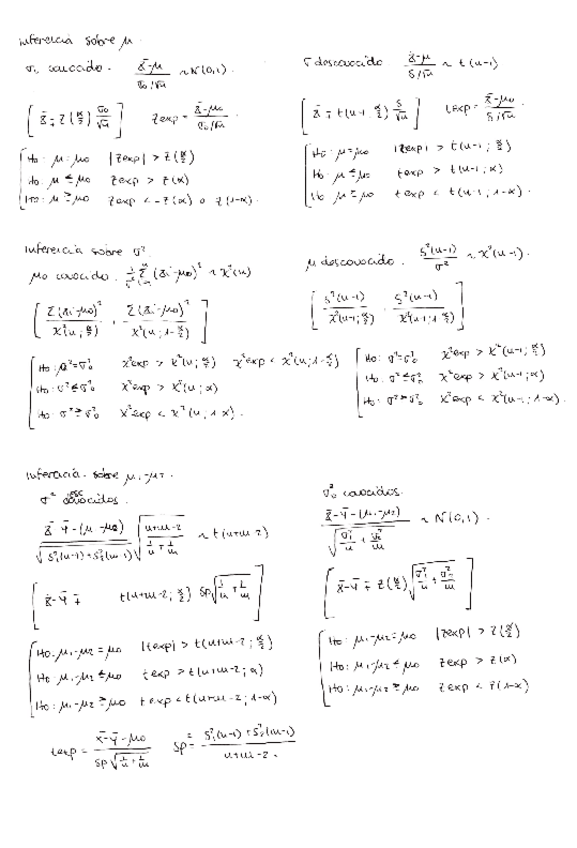 inferencia sobre μ.
σ₀ conocido. (x̄-μ)/(σ₀/√n) ~ N(0,1).
[x̄ ∓ z(α/2) σ₀/√n] zexp = (x̄-μ₀)/(σ₀/√n).
H₀: μ=μ₀ |zexp| > z(α/2)
H₀: μ≤μ₀ zexp > z(α)
H₀: μ≥μ₀ zexp < -z(α) o z(1-α).
σ desconocido (x̄-μ)/(S/√n) ~ t(n-1)
[x̄ ∓ t(n-1, α/2) S/√n] texp = (x̄-μ₀)/(S/√n).
H₀: μ=μ₀ |texp| > t(n-1; α/2)
H₀: μ≤μ₀ texp > t(n-1; α)
H₀: μ≥μ₀ texp < t(n-1; 1-α).
inferencia sobre σ².
μ₀ conocido. 1/σ² Σ(xi-μ₀)² ~ χ²(n)
[Σ(xi-μ₀)²/χ²(n; α/2) , Σ(xi-μ₀)²/χ²(n; 1-α/2)]
H₀: σ²=σ²₀ χ²exp > χ²(n; α/2) χ²exp < χ²(n; 1-α/2)
H₀: σ²≤σ²₀ χ²exp > χ²(n; α)
H₀: σ²≥σ²₀ χ²exp < χ²(n; 1-α).
μ desconocido. S²(n-1)/σ² ~ χ²(n-1).
[S²(n-1)/χ²(n-1; α/2) , S²(n-1)/χ²(n-1; 1-α/2)]
H₀: σ²=σ²₀ χ²exp > χ²(n-1; α/2)
H₀: σ²≤σ²₀ χ²exp > χ²(n-1; α)
H₀: σ²≥σ²₀ χ²exp < χ²(n-1; 1-α).
inferencia sobre μ₁-μ₂.
σ² desconocidos.
(x̄-ȳ-(μ₁-μ₂))/√(S²₁(n-1)+S²₂(m-1)) √((n+m-2)/(1/n+1/m)) ~ t(n+m-2)
[x̄-ȳ ∓ t(n+m-2; α/2) Sp√(1/n+1/m)]
H₀: μ₁-μ₂=μ₀ |texp| > t(n+m-2; α/2)
H₀: μ₁-μ₂≤μ₀ texp > t(n+m-2; α)
H₀: μ₁-μ₂≥μ₀ texp < t(n+m-2; 1-α)
texp = (x̄-ȳ-μ₀)/(Sp√(1/n+1/m)) Sp² = (S²₁(n-1)+S²₂(m-1))/(n+m-2).
σ²₀ conocidos.
(x̄-ȳ-(μ₁-μ₂))/√(σ²₁/n+σ²₂/m) ~ N(0,1).
[x̄-ȳ ∓ z(α/2) √(σ²₁/n+σ²₂/m)]
H₀: μ₁-μ₂=μ₀ |zexp| > z(α/2)
H₀: μ₁-μ₂≤μ₀ zexp > z(α)
H₀: μ₁-μ₂≥μ₀ zexp < z(1-α)